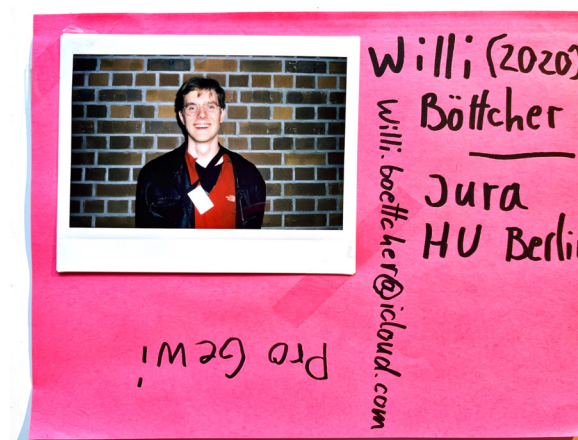 Willi (2020)
Böttcher
Jura
HU Berlin
willi.boettcher@icloud.com
Pro GeWi!